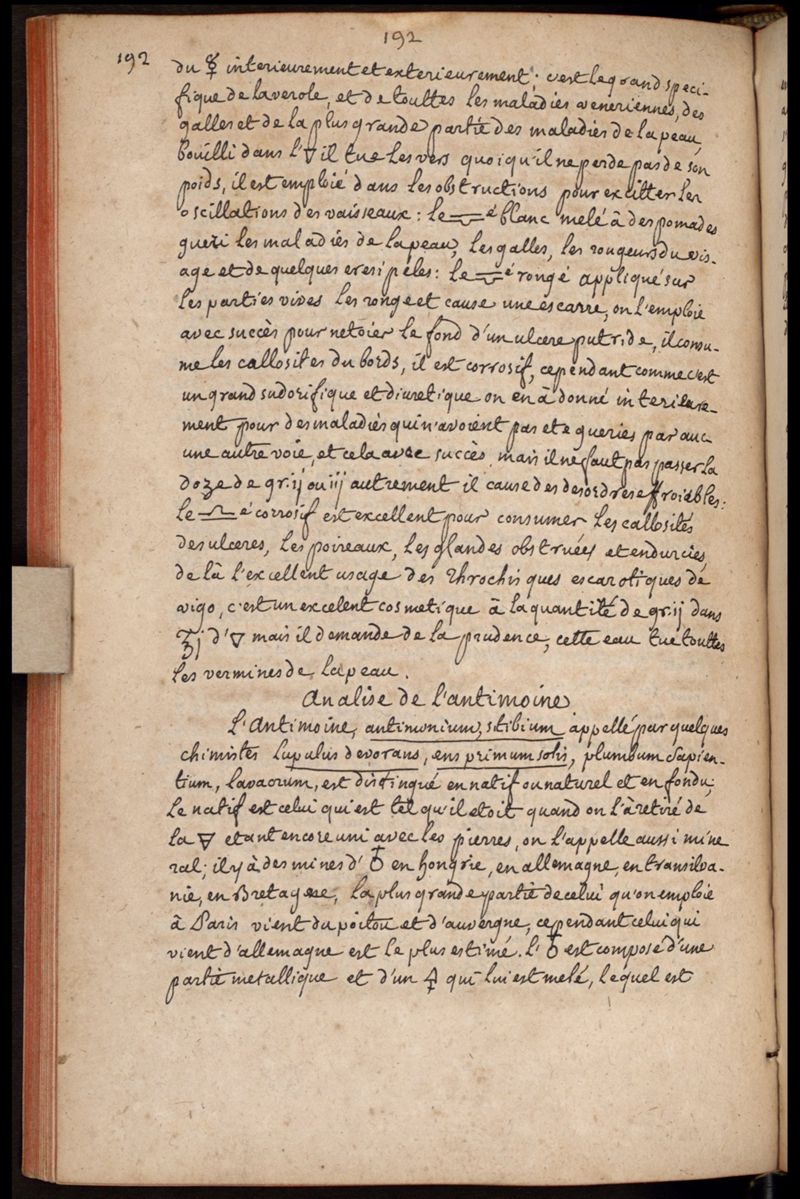 192
192
du ☿ interieurement et exterieurement; c'est le grand speci-
fique de la verole, et de touttes les maladies veneriennes, des
galles et de la plus grande partie des maladies de la peau
bouilli dans l'🜄 il tue les vers quoiqu'il ne perde pas de son
poids, il est emploié dans les obstructions pour exciter les
oscillations des vaisseaux: le é blanc melé à des pomades
gueri les maladies de la peau, les galles, les rougeurs du vis-
age et de quelques eresipéles: le é rouge appliqué sur
les parties vives les ronge et cause une éscarre, on l'emploie
avec succès pour netoier le fond d'un ulcere putride, il consu-
me les callosites du bords, il est corrosif, cependant comme c'est
un grand sudorifique et diuretique on en à donné interieure-
ment pour des maladies qui n'avoient pas ete gueries par auc
une autre voie, et cela avec succès mais il ne faut pas passer la
doze de gr.ij ou iij autrement il cause des desordres effroiables:
le é corrosif est excellent pour consumer les callosités
des ulceres, les poireaux, les glandes obstruées et endurcies,
de là l'excellent usage des throchisques escarotiques de
vigo, c'est un excelent cosmetique à la quantité de gr.ij dans
℥j d'🜄 mais il demande de la prudence, cette eau tue touttes
les vermines de la peau.
Analise de l'antimoine
L'Antimoine, antimonium, stibium appellé par quelques
chimistes lupulus devorans, ens primum solis, plumbum sapien-
tium, lavacrum, est distingué en natif ou naturel et en fondu;
le natif est celui qui est tel qu'il etoit quand on l'à retiré de
la 🜃 etant encore uni avec les pierres, on l'appelle aussi mine
ral; il y à des mines d'♁ en hongrie, en allemagne, en transilva-
nie, en Bretagne, la plus grande partie de celui qu'on emploie
à Paris vient du poitou et d'auvergne, cependant celui qui
vient d'allemagne est le plus estimé. l'♁ est composé d'une
partie metallique et d'un 🜍 qui lui est melé, lequel est